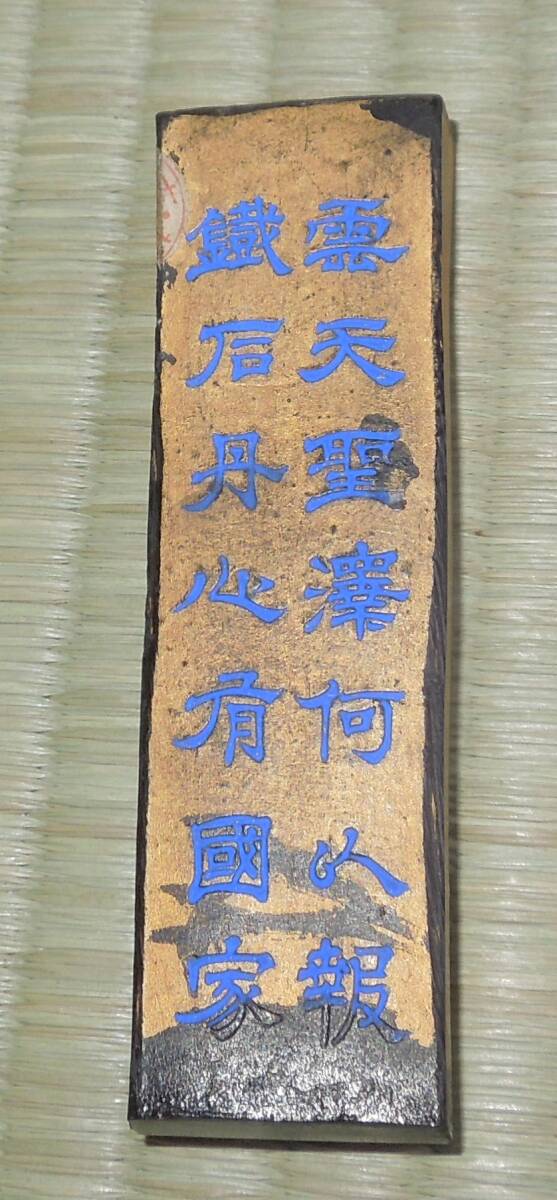 雲天聖澤何以報
鐵石丹心有國家